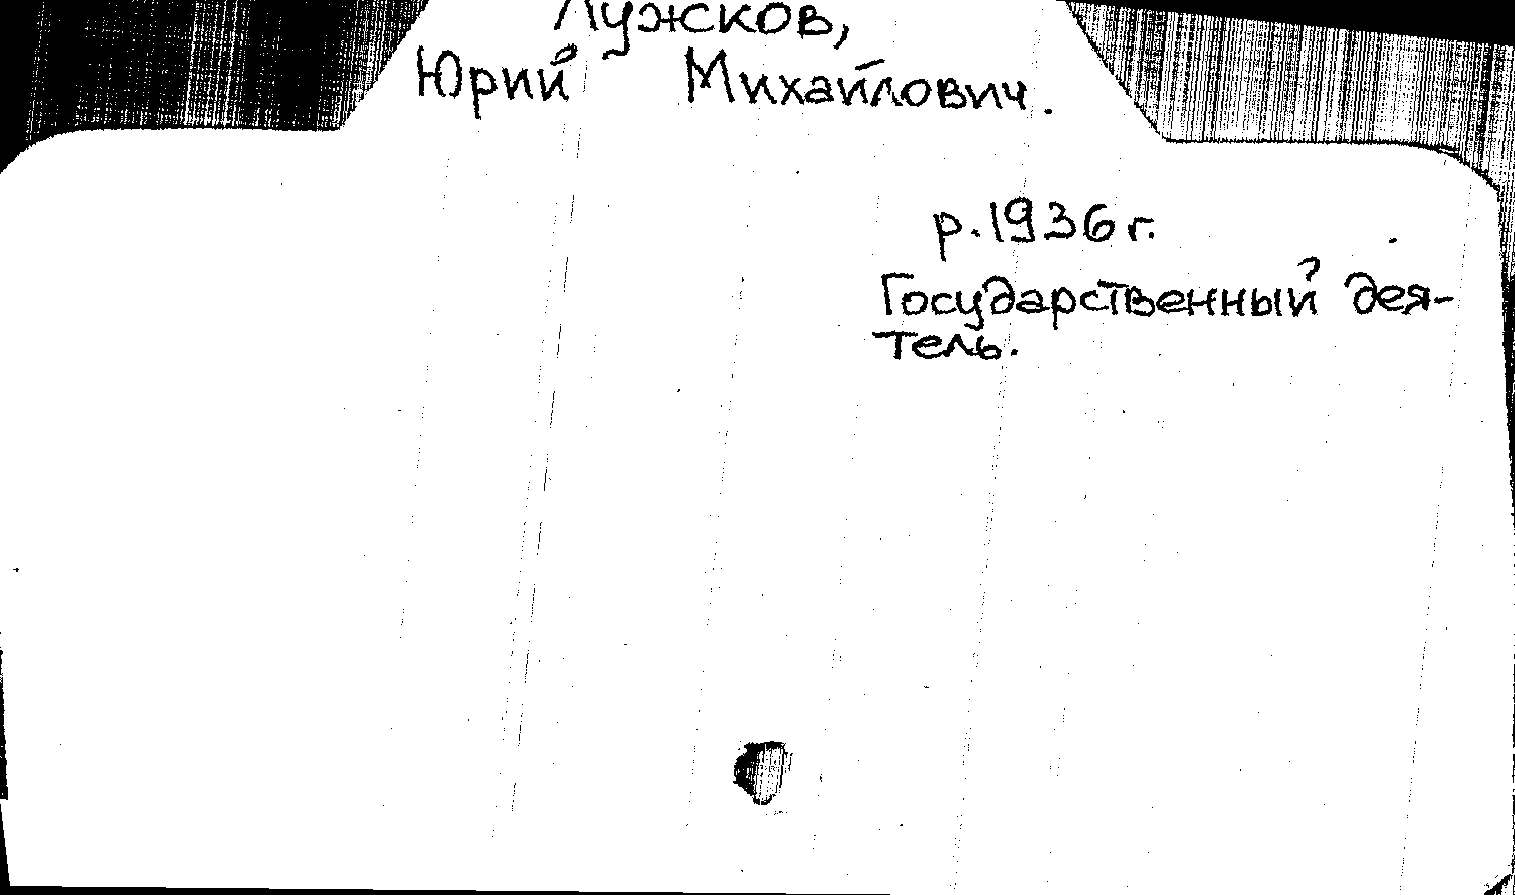 Лужков,
Юрий Михайлович.
р. 1936 г.
Государственный дея-
тель.